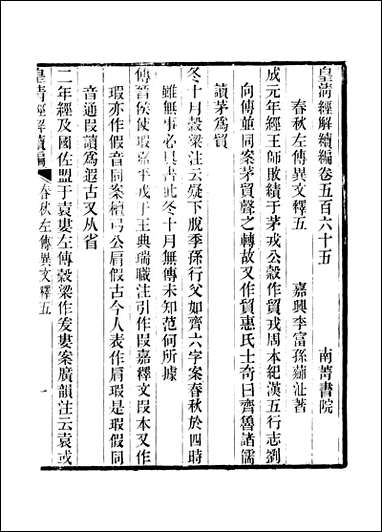 皇清經解續編卷五百六十五　南菁書院
春秋左傳異文釋五　嘉興李富孫薌沚著
成元年經王師敗績于茅戎公穀作貿戎周本紀漢五行志劉
向傳並同案茅貿聲之轉故又作貿惠氏士奇曰齊魯諸儒
讀茅爲貿
冬十月穀梁注云疑下脫季孫行父如齊六字案春秋於四時
雖無事必具書此冬十月無傳未知范何所據
傳晉侯使瑕嘉平戎于王典瑞職注引作叚嘉釋文叚本又作
瑕亦作假音同案檀弓公肩假古今人表作肩瑕是瑕假同
音通叚讀爲遐古又从省
二年經及國佐盟于袁婁左傳穀梁作爰婁案廣韻注云袁或
皇清經解續編
春秋左傳異文釋五
一